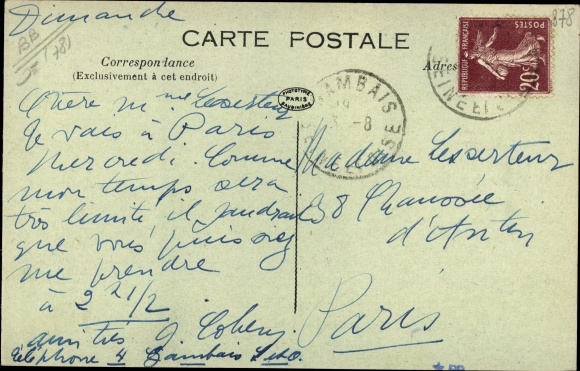 Dimanche
BB
(78)
878
CARTE POSTALE
Correspondance
(Exclusivement à cet endroit)
Adres
REPUBLIQUE FRANÇAISE
POSTES
20c
PHOTOTYPIE
PARIS
GAMBAIS
SEINE
Chère Mme Lesserteur
Je vais à Paris
Mercredi. Comme
mon temps sera
très limité il faudrait
que vous puissiez
me prendre
à 2 h 1/2
amitiés J. Cohen
téléphone 4 Gambais S. et O.
Madame Lesserteur
38 Chaussée
d'Antin
Paris